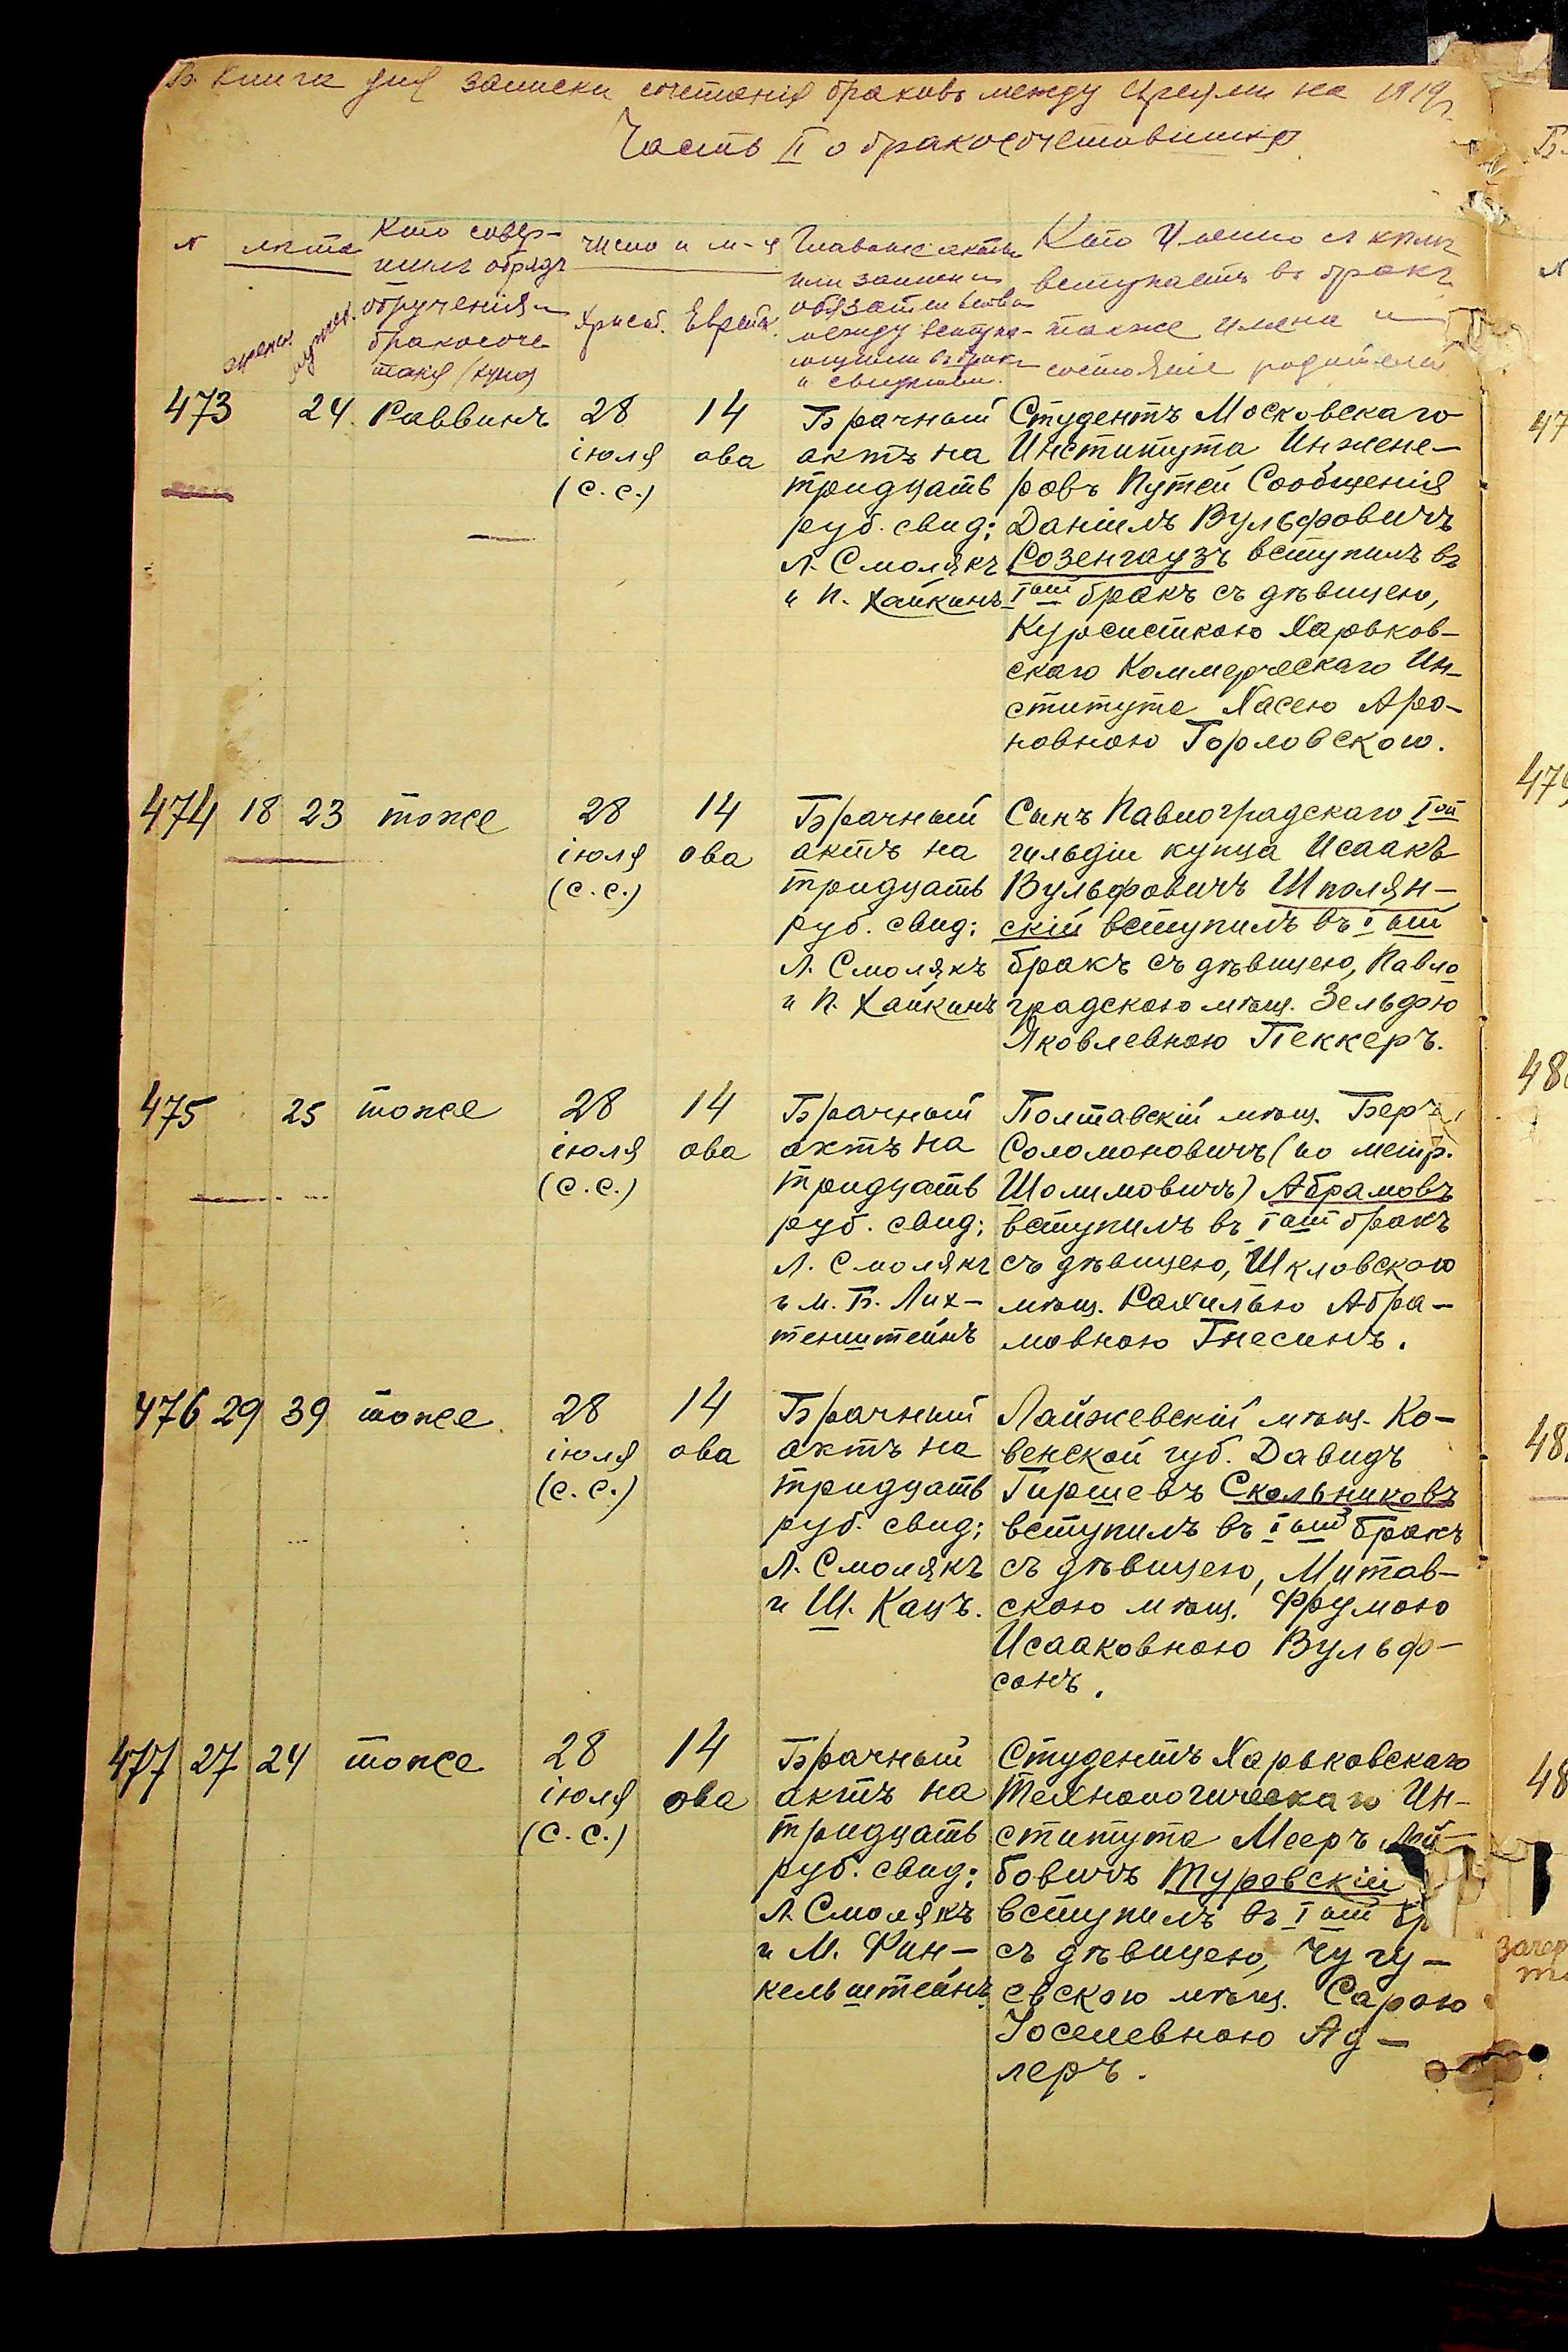 Книга для записки сочетанія браковъ между евреями на 1919 г.
Часть II о бракосочетавшихся
№ лѣта Кто совер-
шилъ обрядъ
обрученія и
бракосоче-
танія
женск. мужск.
число и м-ц
Христ. Еврейск.
Главные акты
или записи и
обязательства
между вступа-
ющими въ бракъ
и свидѣтели.
Кто именно съ кѣмъ
вступаетъ въ бракъ
также имена и
состояніе родителей
473 24 Раввинъ 28 14
іюля ава
(с.с.)
Брачный
актъ на
тридцать
руб. свид:
Л. Смолякъ
и П. Хайкинъ
Студентъ Московскаго
Института Инжене-
ровъ Путей Сообщенія
Даніилъ Вульфовичъ
Розенгаузъ вступилъ въ
Iый бракъ съ дѣвицею,
Курсисткою Харьков-
скаго Коммерческаго Ин-
ститута Хасею Аро-
новною Горловскою.
474 18 23 тоже 28 14
іюля ава
(с.с.)
Брачный
актъ на
тридцать
руб. свид:
Л. Смолякъ
и П. Хайкинъ
Сынъ Павлоградскаго Iой
гильдіи купца Исаакъ
Вульфовичъ Шполян-
скій вступилъ въ Iый
бракъ съ дѣвицею, Павло
градскою мѣщ. Зельдою
Яковлевною Пеккеръ.
475 25 тоже 28 14
іюля ава
(с.с.)
Брачный
актъ на
тридцать
руб. свид:
Л. Смолякъ
и М. Б. Лих-
тенштейнъ
Полтавскій мѣщ. Беръ
Соломоновичъ (по метр.
Шолимовичъ) Абрамовъ
вступилъ въ Iый бракъ
съ дѣвицею, Шкловскою
мѣщ. Рахилью Абра-
мовною Гнесинъ.
476 29 39 тоже 28 14
іюля ава
(с.с.)
Брачный
актъ на
тридцать
руб. свид:
Л. Смолякъ
и Ш. Кацъ.
Лайжевскій мѣщ. Ко-
венской губ. Давидъ
Гиршевъ Скольниковъ
вступилъ въ Iый бракъ
съ дѣвицею, Митав-
скою мѣщ. Фрумою
Исааковною Вульф-
сонъ.
477 27 24 тоже 28 14
іюля ава
(с.с.)
Брачный
актъ на
тридцать
руб. свид:
Л. Смолякъ
и М. Фин-
кельштейнъ
Студентъ Харьковскаго
Технологическаго Ин-
ститута Мееръ Лей-
бовичъ Туровскій
вступилъ въ Iый бр
съ дѣвицею, Чугу-
евскою мѣщ. Сарою
Іоселевною Ад-
леръ.